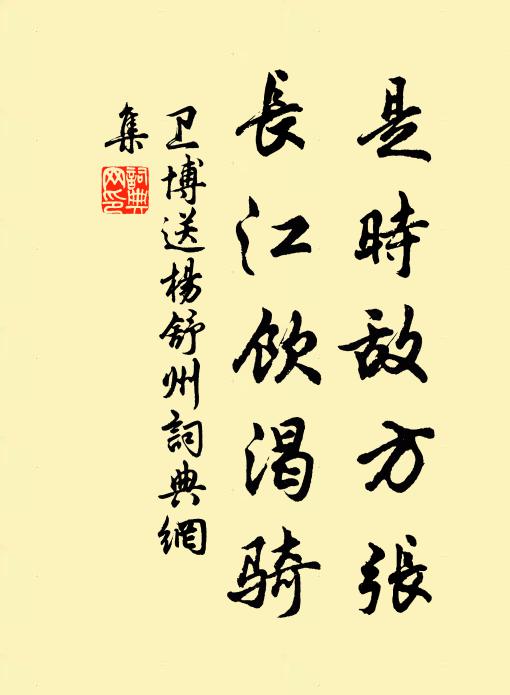 是時敌方張
長江飲渴骑
卫博送楊舒州詞典網
集
詞典网印